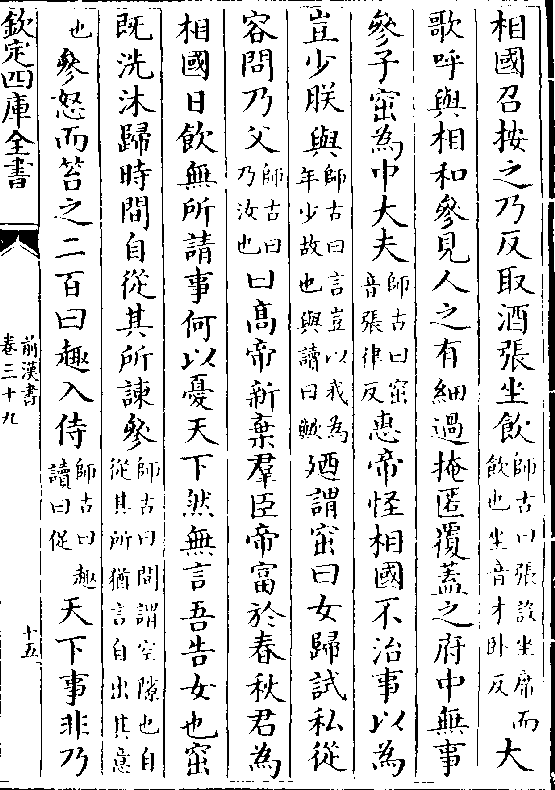 相國召按之乃反取酒張坐飲師古曰張設坐席而飲也坐音才卧反大
歌呼與相和參見人之有細過掩匿覆蓋之府中無事
參子窋為中大夫師古曰窋音張律反惠帝怪相國不治事以為
豈少朕與師古曰言豈以我為年少故也與讀曰歟廼謂窋曰女歸試私從
容問乃父師古曰乃汝也曰髙帝新棄羣臣帝富於春秋君為
相國日飲無所請事何以憂天下然無言吾告女也窋
既洗沐歸時間自從其所諫參師古曰間謂空隙也自從其所猶言自出其意
也參怒而笞之二百曰趣入侍師古曰趣讀曰促天下事非乃
欽定四庫全書
前漢書
卷三十九
十五